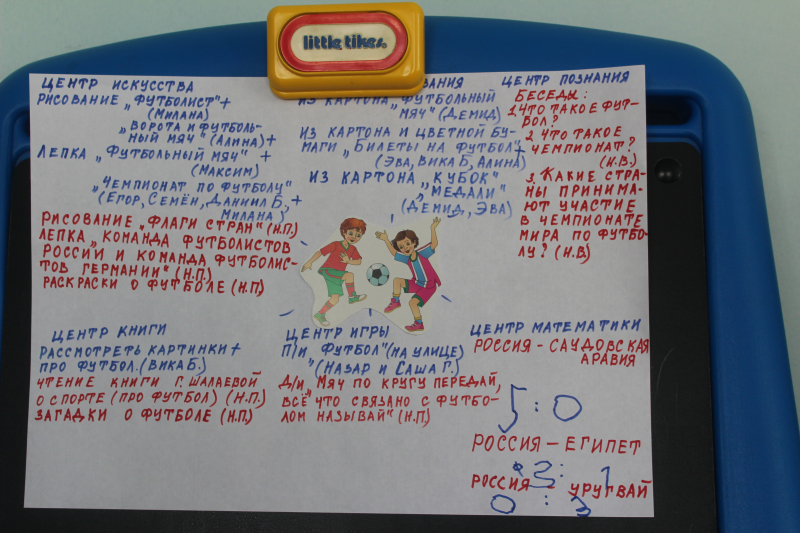 little tikes
ЦЕНТР ИСКУССТВА
РИСОВАНИЕ „ФУТБОЛИСТ"+
(МИЛАНА)
„ВОРОТА И ФУТБОЛЬ-
НЫЙ МЯЧ" (АЛИНА)+
ЛЕПКА „ФУТБОЛЬНЫЙ МЯЧ" +
(МАКСИМ)
„ЧЕМПИОНАТ ПО ФУТБОЛУ"
(ЕГОР, СЕМЁН, ДАНИИЛ Б., +
МИЛАНА)
РИСОВАНИЕ „ФЛАГИ СТРАН" (Н.П.)
ЛЕПКА „КОМАНДА ФУТБОЛИСТОВ
РОССИИ И КОМАНДА ФУТБОЛИС-
ТОВ ГЕРМАНИИ" (Н.П.)
РАСКРАСКИ О ФУТБОЛЕ (Н.П)
ВАНИЯ
ИЗ КАРТОНА „ФУТБОЛЬНЫЙ
МЯЧ" (ДЕМИД)
ИЗ КАРТОНА И ЦВЕТНОЙ БУ-
МАГИ „БИЛЕТЫ НА ФУТБОЛ"+
(ЭВА, ВИКА Б, АЛИНА)
ИЗ КАРТОНА „КУБОК"
„МЕДАЛИ"
(ДЕМИД, ЭВА)
ЦЕНТР ПОЗНАНИЯ
БЕСЕДЫ:
1. ЧТО ТАКОЕ ФУТ-
БОЛ?
2. ЧТО ТАКОЕ
ЧЕМПИОНАТ?
(Н.В.)
3. КАКИЕ СТРА-
НЫ ПРИНИМА-
ЮТ УЧАСТИЕ
В ЧЕМПИОНАТЕ
МИРА ПО ФУТБО-
ЛУ? (Н.В)
ЦЕНТР КНИГИ
РАССМОТРЕТЬ КАРТИНКИ+
ПРО ФУТБОЛ. (ВИКА Б.)
ЧТЕНИЕ КНИГИ Г. ШАЛАЕВОЙ
О СПОРТЕ (ПРО ФУТБОЛ) (Н.П.)
ЗАГАДКИ О ФУТБОЛЕ (Н.П.)
ЦЕНТР ИГРЫ
П/И „ФУТБОЛ" (НА УЛИЦЕ)
(НАЗАР И САША Г.)
Д/И „МЯЧ ПО КРУГУ ПЕРЕДАЙ,
ВСЁ ЧТО СВЯЗАНО С ФУТБО-
ЛОМ НАЗЫВАЙ" (Н.П.)
ЦЕНТР МАТЕМАТИКИ
РОССИЯ - САУДОВСКАЯ
АРАВИЯ
5 : 0
РОССИЯ - ЕГИПЕТ
3 : 1
РОССИЯ - УРУГВАЙ
0 : 3